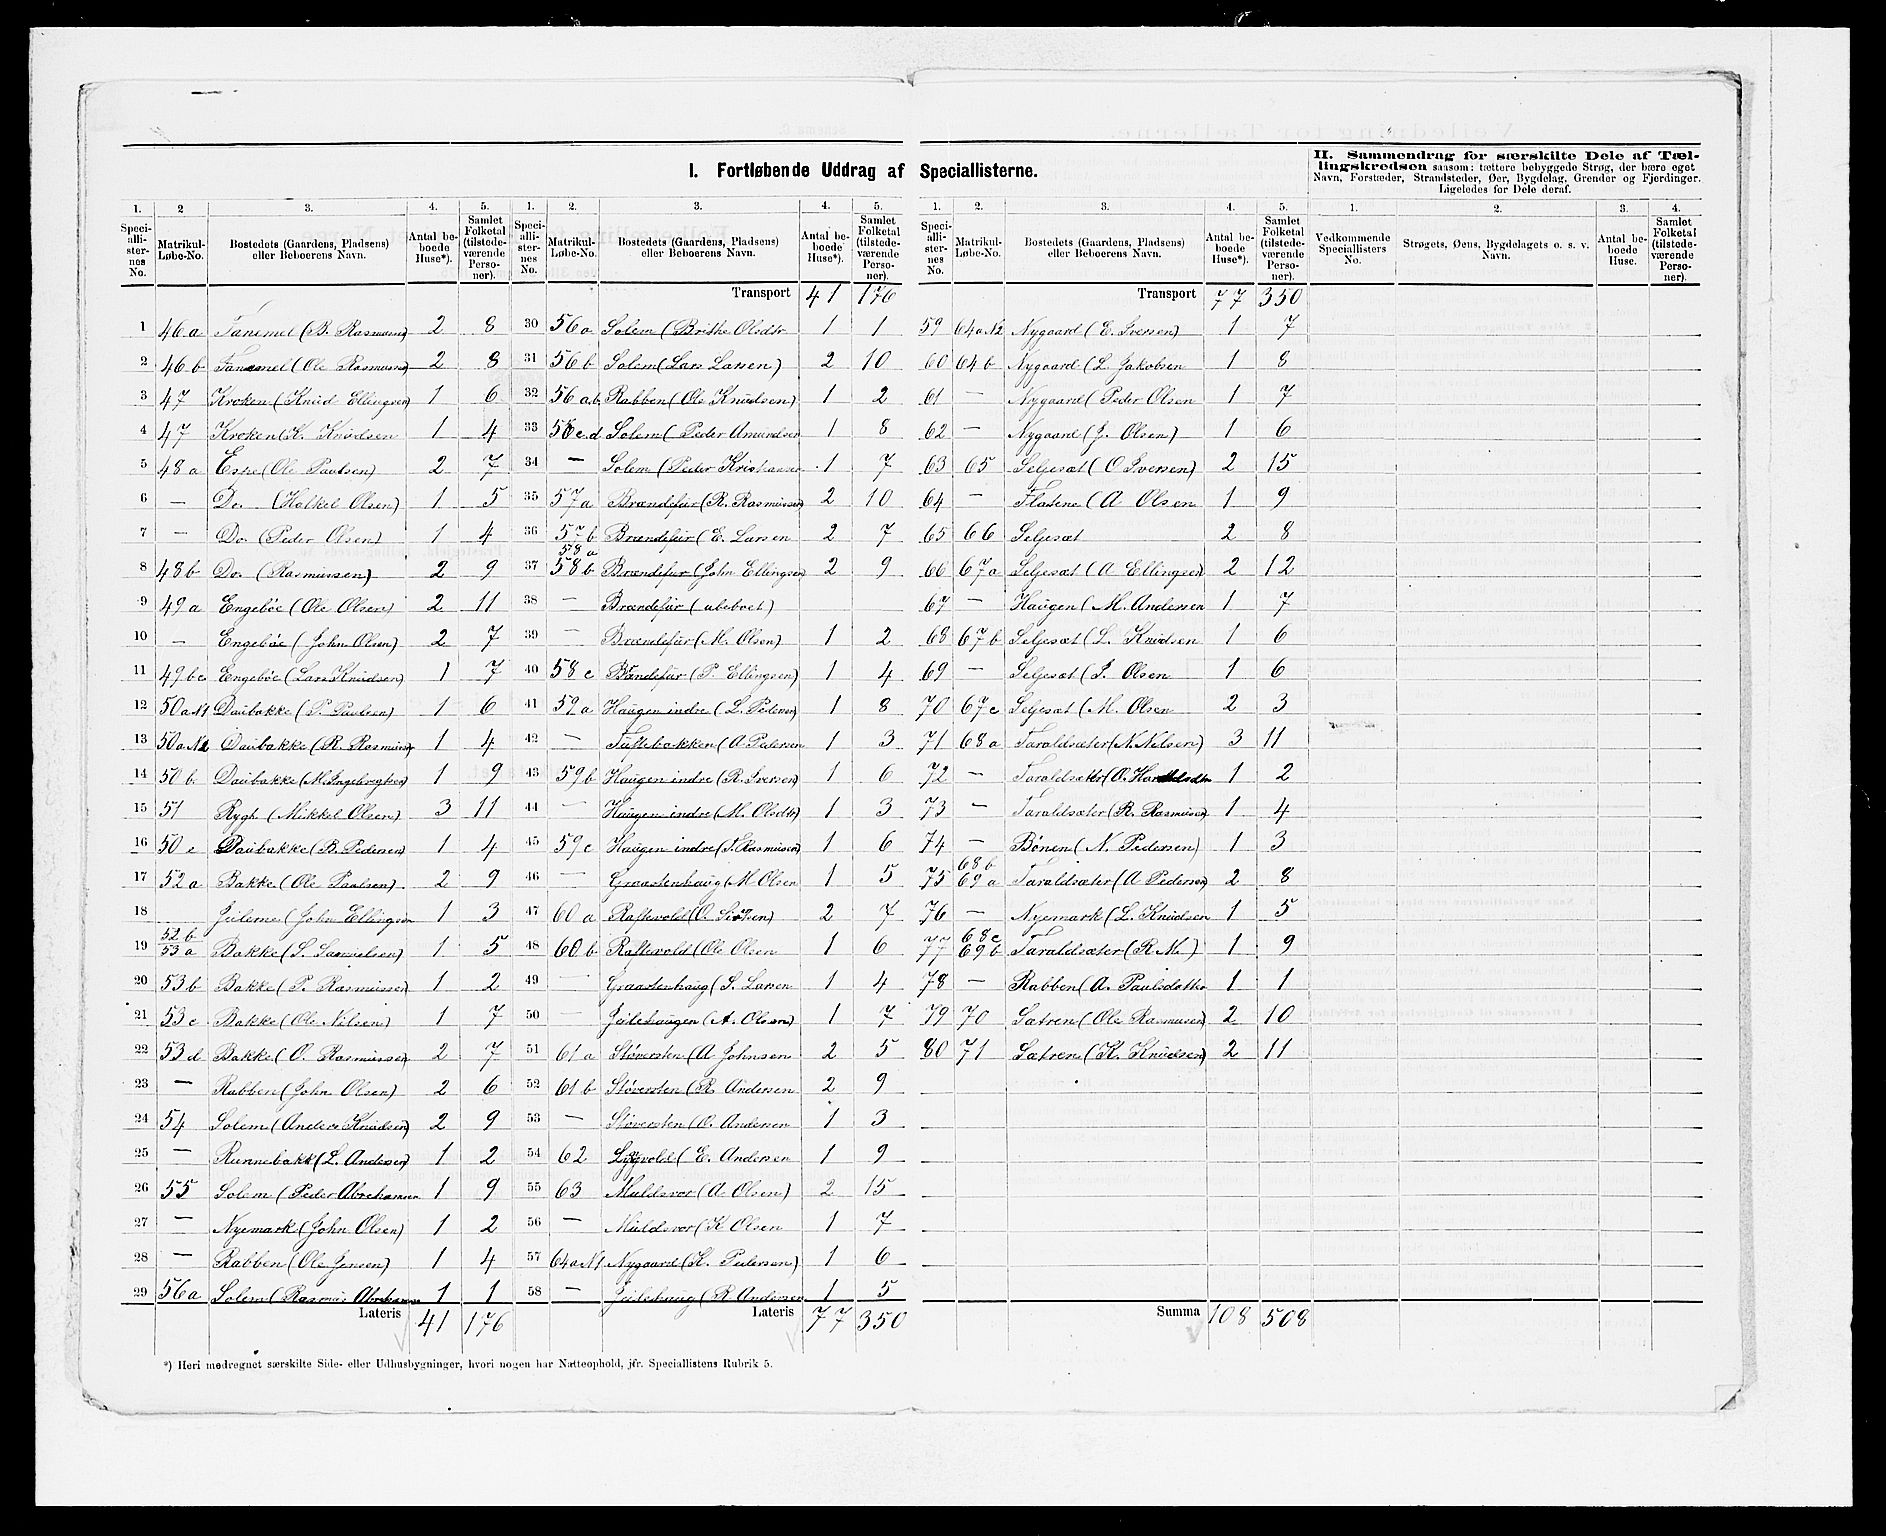 I. Fortløbende Uddrag af Speciallisterne.
II. Sammendrag for særskilte Dele af Tæl-
lingskredsen saasom: tættere bebyggede Strøg, der bære eget
Navn, Forstæder, Strandsteder, Øer, Bygdelag, Grender og Fjerdinger.
Ligeledes for Dele deraf.
1. 2 3. 4. 5. 1. 2. 3. 4. 5. 1. 2. 3. 4. 5. 1. 2. 3. 4.
Speci-alli-ster-nes No. Matrikul-Løbe-No. Bostedets (Gaardens, Pladsens) eller Beboerens Navn. Antal be-boede Huse*). Samlet Folketal (tilstede-værende Perso-ner).
Speci-alli-ster-nes No. Matrikul-Løbe-No. Bostedets (Gaardens, Pladsens) eller Beboerens Navn. Antal be-boede Huse*). Samlet Folketal (tilstede-værende Perso-ner).
Speci-alli-ster-nes No. Matrikul-Løbe-No. Bostedets (Gaardens, Pladsens) eller Beboerens Navn. Antal be-boede Huse*). Samlet Folketal (tilstede-værende Perso-ner).
Vedkommende Speciallisters No. Strøgets, Øens, Bygdelagets o. s. v. Navn. Antal be-boede Huse. Samlet Folketal (tilstede-værende Perso-ner).
1 46a Fanemel (B. Rasmusen) 2 8
2 46b Fanemel (Ole Rasmusen) 2 8
3 47 Kroken (Knud Ellingsen) 1 6
4 47 Kroken (K. Knudsen 1 4
5 48a Espe (Ole Paulsen) 2 7
6 — Do. (Halkel Olsen) 1 5
7 — Do. (Peder Olsen) 1 4
8 48b Do. (Rasmussen) 2 9
9 49a Engebøe (Ole Olsen) 2 11
10 — Engebøe (John Olsen) 2 7
11 49bc Engebøe (Lars Knudsen) 1 7
12 50aN1 Daubakke (P. Paulsen) 1 6
13 50aN2 Daubakke (R. Rasmusen 1 4
14 50b Daubakke (M. Ingebrigtsen) 1 9
15 51 Rygh (Mikkel Olsen) 3 11
16 50c Daubakke (B. Pedersen) 1 4
17 52a Bakke (Ole Paulsen) 2 9
18 Jeilerne (John Ellingsen 1 3
19 52b 53a Bakke (S. Samuelsen) 1 5
20 53b Bakke (P. Rasmussen) 1 2
21 53c Bakke (Ole Nilsen) 1 7
22 53d Bakke (O. Rasmussen 2 7
23 — Rabben (John Olsen) 2 6
24 54 Solem (Anders Knudsen) 2 9
25 — Runnebakk (L. Andersen) 1 2
26 55 Solem (Peder Abrahamsen 1 9
27 — Nyemark (John Olsen) 1 2
28 — Rabben (Ole Jensen) 1 4
29 56a Solem (Rasmus Abrahamsen 1 1
Lateris 41 176
Transport 41 176
30 56a Solem (Brithe Olsdtr 1 1
31 56b Solem (Lars Larsen) 2 10
32 56ab Rabben (Ole Knudsen) 1 2
33 56c.d Solem (Peder Amundsen 1 8
34 — Solem (Peder Kristiansen 1 7
35 57a Brændefur (R. Rasmussen) 2 10
36 57b Brændefur (E. Larsen 2 7
37 58a 58b Brændefur (John Ellingsen 2 9
38 — Brændefur (ubeboet)
39 — Brændefur (M. Olsen) 1 2
40 58c Brændefur (P. Ellingsen) 1 4
41 59a Haugen indre (L. Pedersen) 1 8
42 — Tuftebakken (A Pedersen 1 3
43 59b Haugen indre (R. Iversen) 1 6
44 — Haugen indre (M. Olsdtr) 1 3
45 59c Haugen indre (S. Rasmusen) 1 6
46 — Graastenhaug (M Olsen 1 5
47 60a Raftevold (O. Sivertsen) 2 7
48 60b Raftevold (Ole Olsen 1 6
49 — Graastenhaug (S. Larsen 1 4
50 — Jeilehaugen (A. Olsen) 1 7
51 61a Støversten (A Johnsen 2 5
52 61b Støversten (R. Andersen 2 9
53 — Støversten (O. Andersen 1 3
54 62 Lyngvold (E. Andersen 1 9
55 63 Muldsvor (A. Olsen) 2 15
56 — Muldsvor (K Olsen 1 7
57 64aN1 Nygaard (K. Pedersen) 1 6
58 — Jeilehaug (R Andersen 1 5
Lateris 77 350
Transport 77 350
59 64aN2 Nygaard (E. Iversen) 1 7
60 64b Nygaard (L. Jakobsen 1 8
61 — Nygaard (Peder Olsen 1 7
62 — Nygaard (J. Olsen) 1 6
63 65 Seljesæt (O Iversen) 2 15
64 — Flatene (A Olsen 1 9
65 66 Seljesæt 2 8
66 67a Seljesæt (A Ellingsen) 2 12
67 — Haugen (M. Andersen 1 7
68 67b Seljesæt (L. Knudsen 1 6
69 — Seljesæt (P. Olsen 1 6
70 67c Seljesæt (M. Olsen 2 3
71 68a Taraldsæter (N. Nilsen) 3 11
72 — Taraldsæter (O. 1 2
73 — Taraldsæter (R. Rasmusen 1 4
74 — Bønen (N. Pedersen) 1 3
75 68b 69a Taraldsæter (A Pedersen) 2 8
76 — Nyemark (L. Knudsen 1 5
77 68c 69b Taraldsæter (R N.) 1 9
78 — Rabben (A. Paulsdatter 1 1
79 70 Sætren (Ole Rasmusen) 2 10
80 71 Sætren (K. Knudsen) 2 11
Summa 108 508
*) Heri medregnet særskilte Side- eller Udhusbygninger, hvori nogen har Natteophold, jfr. Speciallistens Rubrik 5.